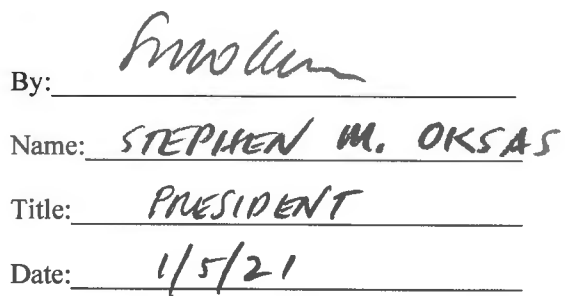 By:
Name: STEPHEN M. OKSAS
Title: PRESIDENT
Date: 1/5/21